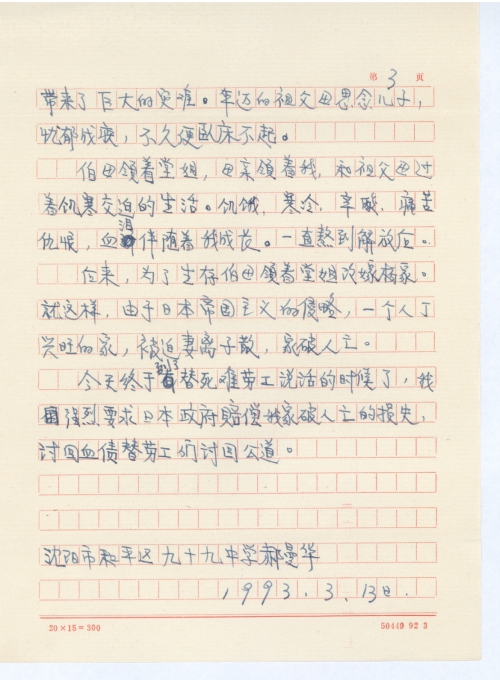 第 3 页
带来了巨大的灾难。年迈的祖父母思念儿子，
忧郁成丧，不久便卧床不起。
伯母领着堂姐，母亲领着我，和祖父母过
着饥寒交迫的生活。饥饿、寒冷、辛酸、痛苦
仇恨，血泪伴随着我成长。一直熬到解放后。
后来，为了生存伯母领着堂姐改嫁杨家。
就这样，由于日本帝国主义的侵略，一个人丁
兴旺的家，被迫妻离子散，家破人亡。
今天终于到了替死难劳工说话的时候了，我
强烈要求日本政府赔偿我家破人亡的损失，
讨回血债替劳工们讨回公道。
沈阳市和平区九十九中学郝曼华
1993.3.13日.
20×15=300 50449 92 3